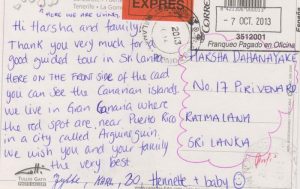 Tenerife - La Gomera
HERE WE ARE LIVING.
EXPRES
CORREOS
- 7 OCT. 2013
3512001
Franqueo Pagado en Oficina
Hi Harsha and family,
Thank you very much for a
good guided tour in Sri Lanka
HERE ON THE FRONT SIDE of the card
you can see the Canarian islands.
we live in Gran Canaria where
the red spot are, near Puerto Rico
in a city called Arguineguin.
we wish you and your family
the very best
Henriette + baby
HARSHA DAHANAYAKE
No. 17 PIRIVENA RD
RATMALANA
SRI LANKA